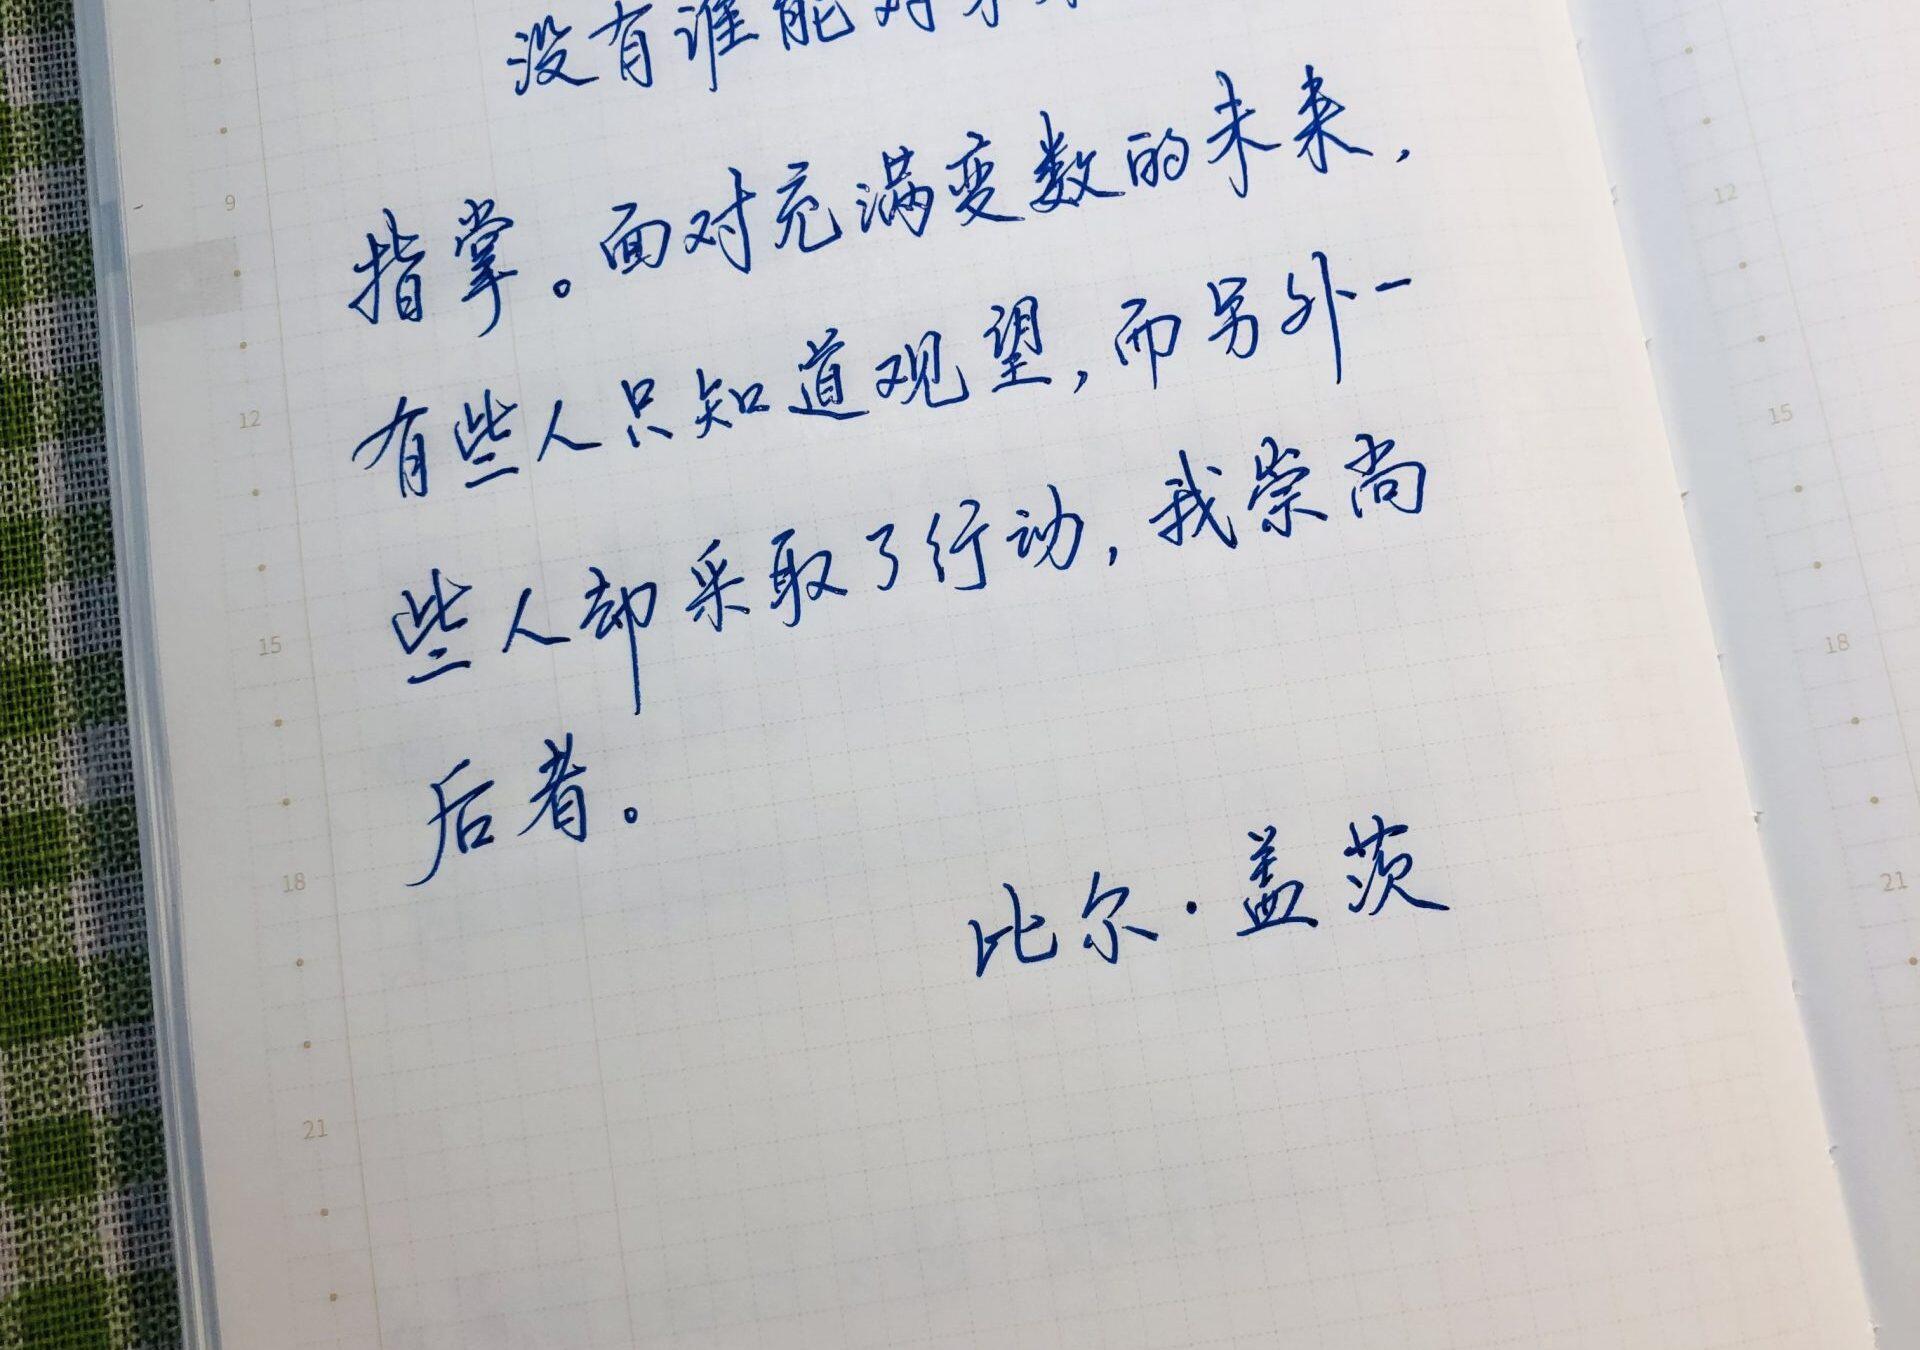 没有谁能对未来
指掌。面对充满变数的未来，
有些人只知道观望，而另外一
些人却采取了行动，我崇尚
后者。
比尔·盖茨
9
12
15
18
21
12
15
18
21